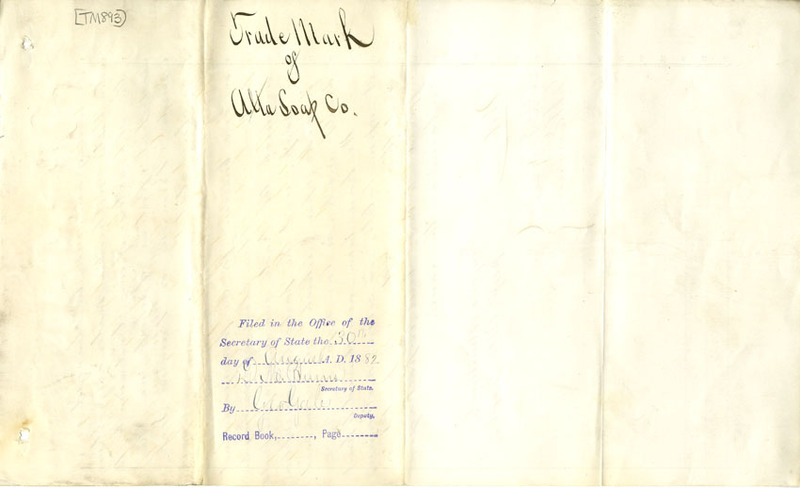 [TM893]
Trade Mark
of
Alta Soap Co.
Filed in the Office of the
Secretary of State the 30th
day of August A. D. 1889
Secretary of State.
By
Deputy.
Record Book, , Page